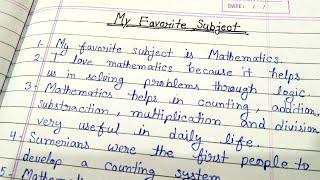 DATE: / /
My Favorite Subject
1- My favorite subject is Mathematics.
2- I love mathematics because it helps
us in solving problems through logic.
3- Mathematics helps in counting, addition,
substraction, multiplication and division
very useful in daily life.
4- Sumerians were the first people to
develop a counting system
5-